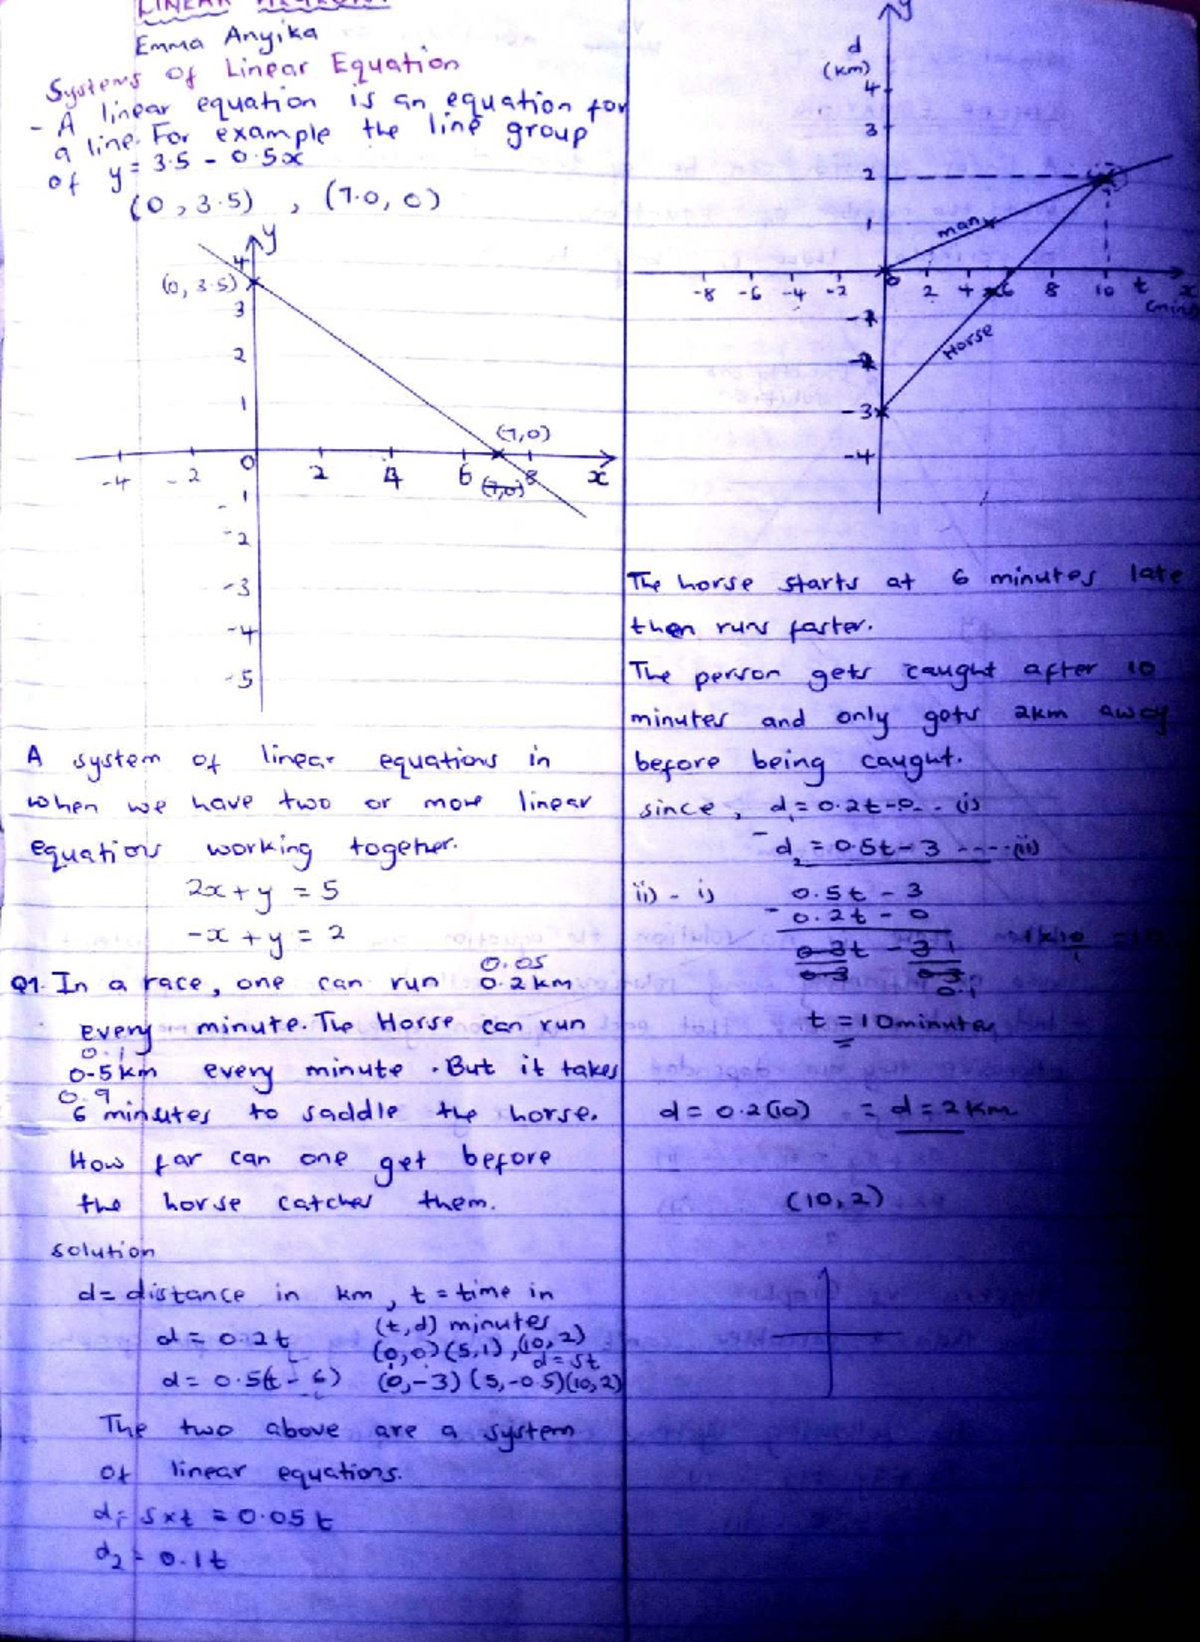 LINEAR ALGEBRA
Emma Anyika
Systems of Linear Equation
- A linear equation is an equation for
a line. For example the line group
of y = 3.5 - 0.5x
(0, 3.5) , (7.0, 0)
y
4
(0, 3.5)
3
2
1
(7,0)
-4 -2 0 2 4 6 (7,0) 8 x
-1
-2
-3
-4
-5
A system of linear equations in
when we have two or more linear
equations working together.
2x + y = 5
-x + y = 2
0.05
Q1. In a race, one can run 0.2km
every minute. The Horse can run
0.1
0.5km every minute. But it takes
0.9
6 minutes to saddle the horse.
How far can one get before
the horse catches them.
solution
d= distance in km, t = time in
(t,d) minutes
d = 0.2t (0,0) (5,1), (10,2)
d=st
d = 0.5(t - 6) (0,-3) (5,-0.5)(10,2)
The two above are a system
of linear equations.
d1= s x t = 0.05t
d2 = 0.1t
y
d
(km)
4
3
2
man
1
-8 -6 -4 -2 0 2 4 6 8 10 t x
(mins
-1
-2
Horse
-3
-4
The horse starts at 6 minutes late
then runs faster.
The person gets caught after 10
minutes and only gets 2km away
before being caught.
since, d1 = 0.2t-0 .. (i)
- d2 = 0.5t - 3 .... (ii)
ii) - i) 0.5t - 3
- 0.2t - 0
0.3t - 3 1
0.3 0.3
0.1
t = 10 minutes
d = 0.2(10) = d = 2km
(10, 2)